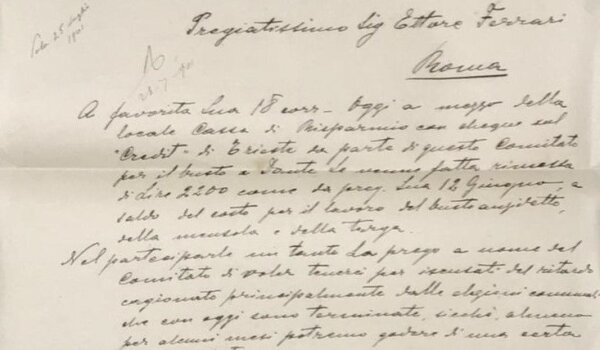 Pola 25 luglio
1901
Pregiatissimo Sig Ettore Ferrari
Roma
25-7-901
A favorita Sua 18 corr- Oggi a mezzo della
locale Cassa di Risparmio con cheque sul
"Credit" di Trieste da parte di questo Comitato
per il busto a Dante Le venne fatta rimessa
di Lire 2200 come da preg. Sua 12 Giugno, a
saldo del costo per il lavoro del busto anzidetto,
della mensola e della targa.
Nel parteciparle un tanto La prego a nome del
Comitato di voler tenerci per iscusati del ritardo
cagionato principalmente dalle elezioni comunali
che con oggi sono terminate, sicchè, almeno
per alcuni mesi potremo godere di una certa